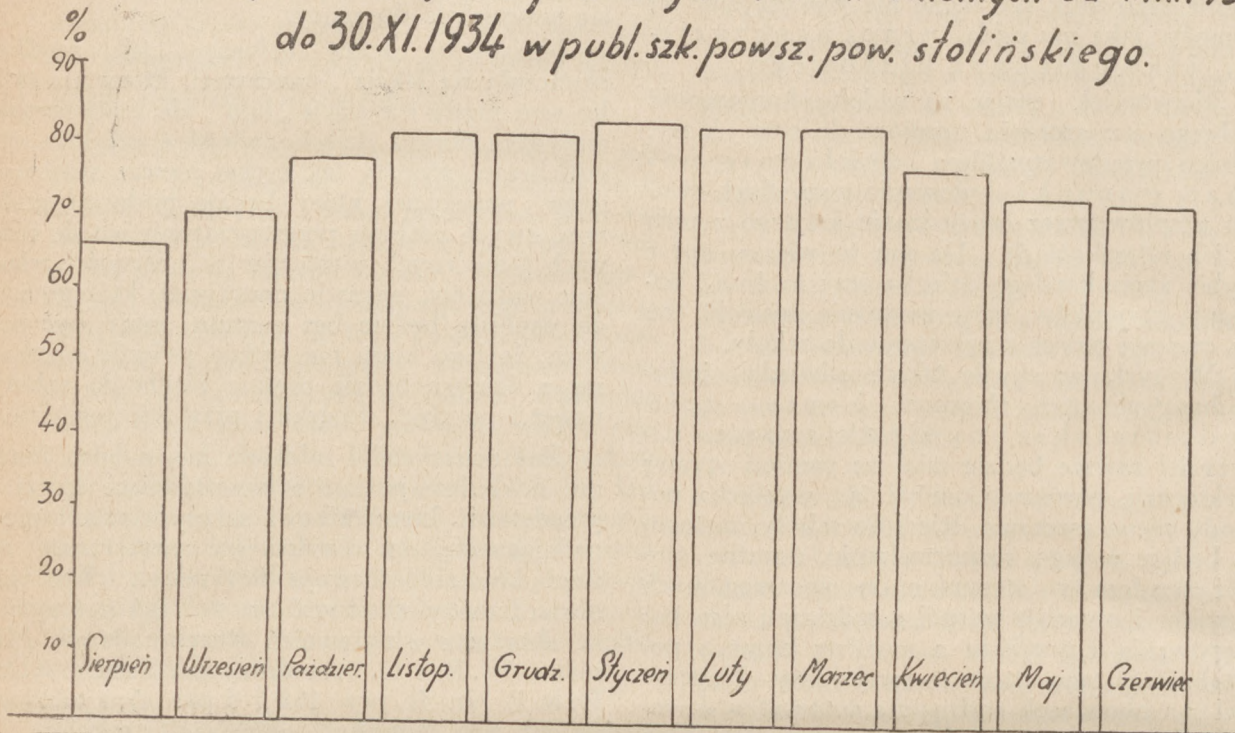 do 30.XI.1934 w publ. szk. powsz. pow. stolińskiego.
%
90
80
70
60
50
40
30
20
10
Sierpień Wrzesień Paździer. Listop. Grudz. Styczeń Luty Marzec Kwiecień Maj Czerwiec